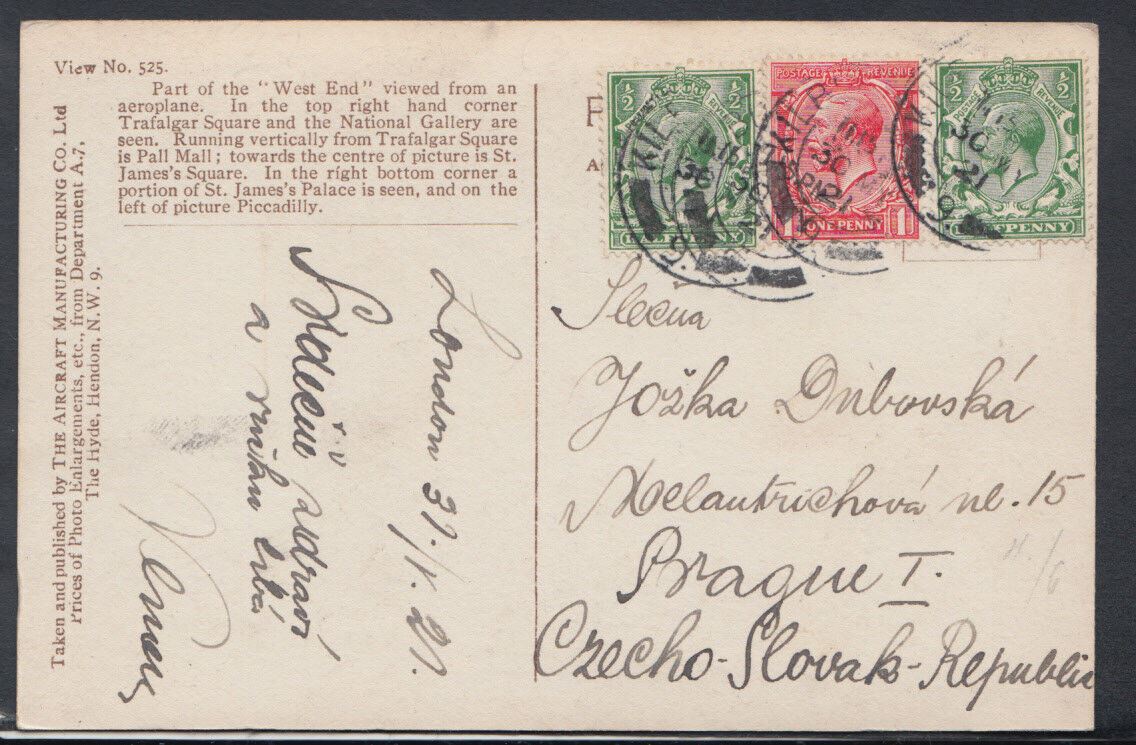 View No. 525.
Part of the "West End" viewed from an
aeroplane. In the top right hand corner
Trafalgar Square and the National Gallery are
seen. Running vertically from Trafalgar Square
is Pall Mall; towards the centre of picture is St.
James's Square. In the right bottom corner a
portion of St. James's Palace is seen, and on the
left of picture Piccadilly.
Taken and published by THE AIRCRAFT MANUFACTURING CO. Ltd
Prices of Photo Enlargements, etc., from Department A.7,
The Hyde, Hendon, N.W. 9.
London 31./V. 21.
Srdečně zdraví
a
POSTAGE REVENUE
ONE PENNY
1
½
½
HALFPENNY
HALFPENNY
Slečna
Jožka Dubovská
Melantrichová ul. 15
Prague I.
Czecho-Slovak-Republic